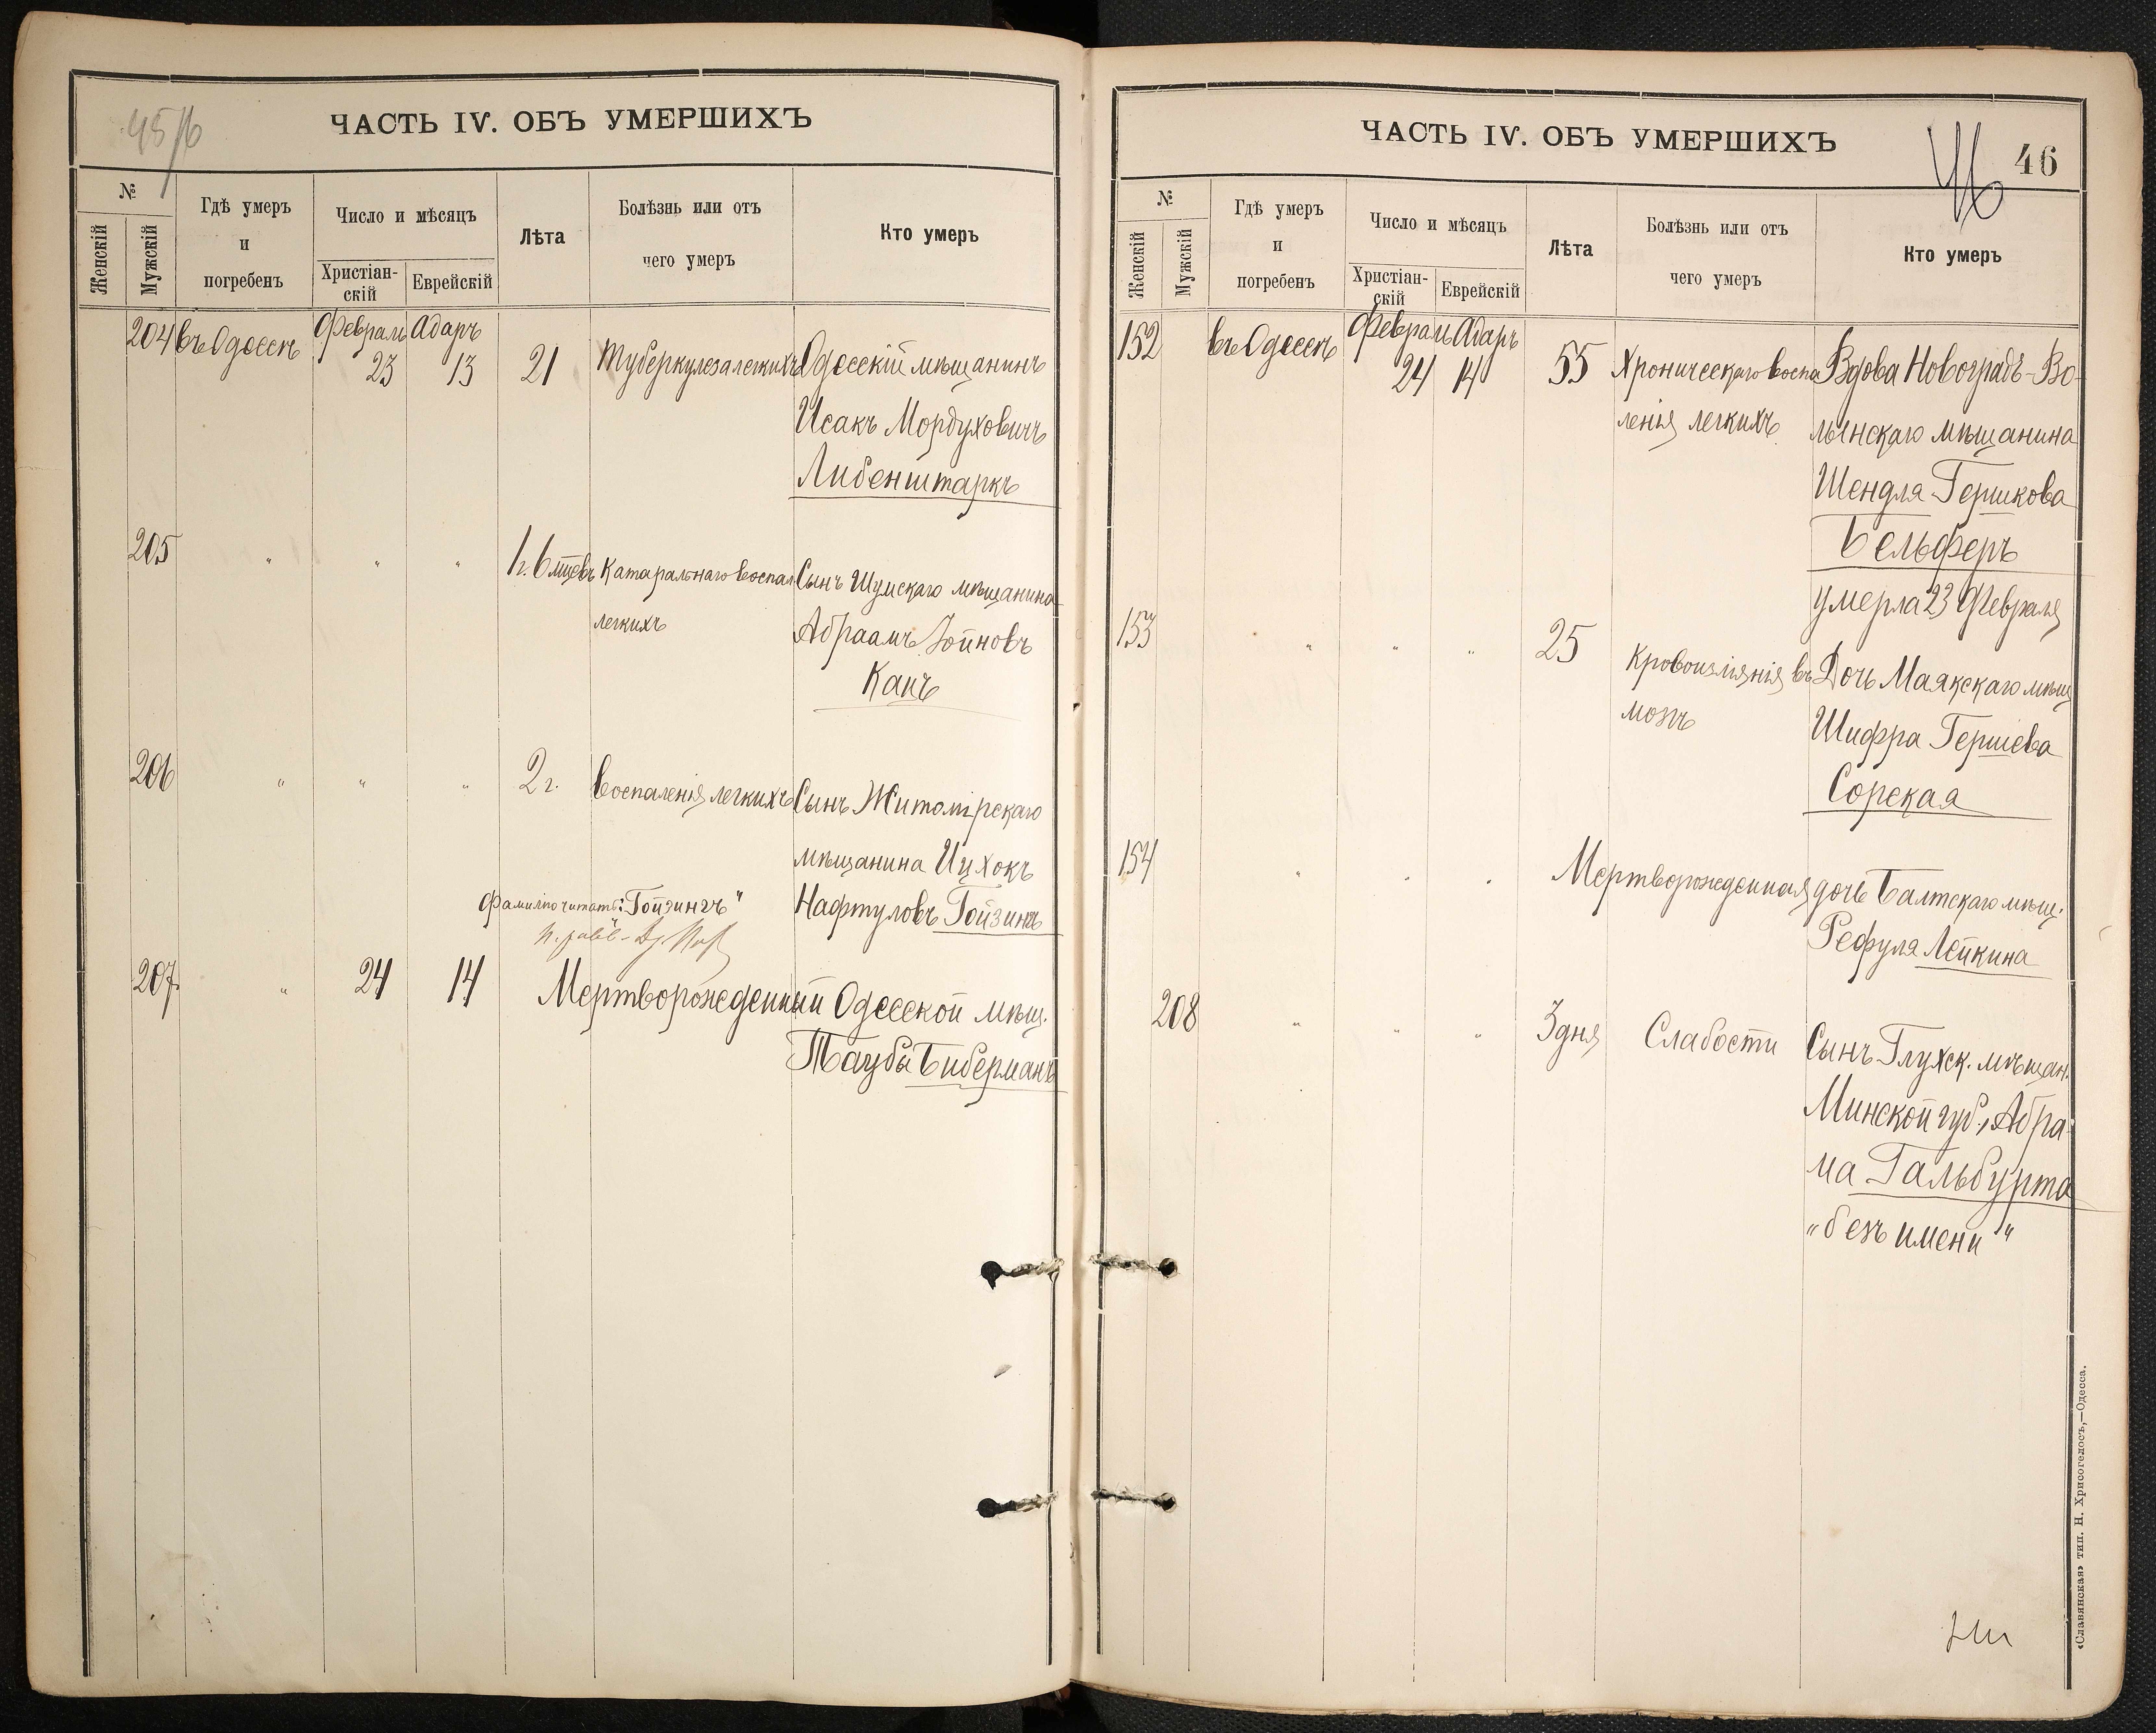 45/б
ЧАСТЬ IV. ОБЪ УМЕРШИХЪ
№
Женскій
Мужскій
Гдѣ умеръ
и
погребенъ
Число и мѣсяцъ
Христіан-
скій
Еврейскій
Лѣта
Болѣзнь или отъ
чего умеръ
Кто умеръ
204 въ Одессѣ Февраль Адаръ
23 13 21 Туберкулеза легкихъ Одесскій мѣщанинъ
Исакъ Мордуховичъ
Либенштаркъ
205 " " " 1 г. 6 мѣсъ Катаральнаго воспал. Сынъ Шумскаго мѣщанина
легкихъ Абраамъ Зойновъ
Канъ
206 " " " 2 г. Воспаленія легкихъ Сынъ Житомірскаго
мѣщанина Ицхокъ
Нафтуловъ Гойзинъ
Фамилію читать: "Гойзингъ"
207 " 24 14 Мертворожденный Одесской мѣщ.
Таубы Биберманъ
ЧАСТЬ IV. ОБЪ УМЕРШИХЪ
46
46
№
Женскій
Мужскій
Гдѣ умеръ
и
погребенъ
Число и мѣсяцъ
Христіан-
скій
Еврейскій
Лѣта
Болѣзнь или отъ
чего умеръ
Кто умеръ
152 въ Одессѣ Февраль Адаръ
24 14 55 Хроническаго воспа Вдова Новоградъ-Во-
ленія легкихъ лынскаго мѣщанина
Шендля Гершкова
Бельферъ
умерла 23 Февраля
153 " " " 25 Кровоизліянія въ Дочь Маякскаго мѣщ
мозгъ Шифра Гершева
Сорская
154 " " " Мертворожденная дочь Балтскаго мѣщ.
Рефуля Лейкина
208 " " " 3 дня Слабости Сынъ Глухск. мѣщан.
Минской губ., Абра-
ма Гальбурта
"безъ имени"
«Славянская» тип. Н. Хрисогелосъ,—Одесса.